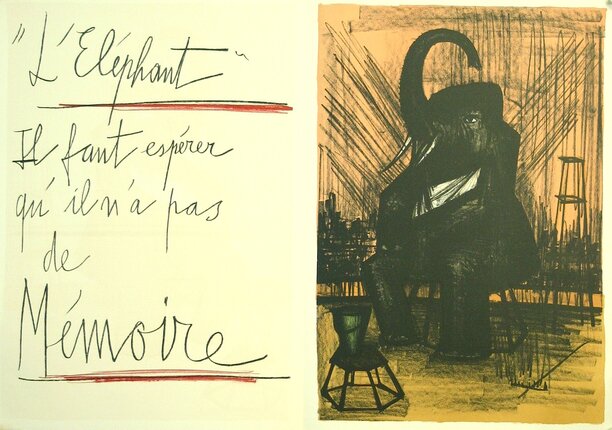 "L'Eléphant"
Il faut espérer
qu'il n'a pas
de
Mémoire